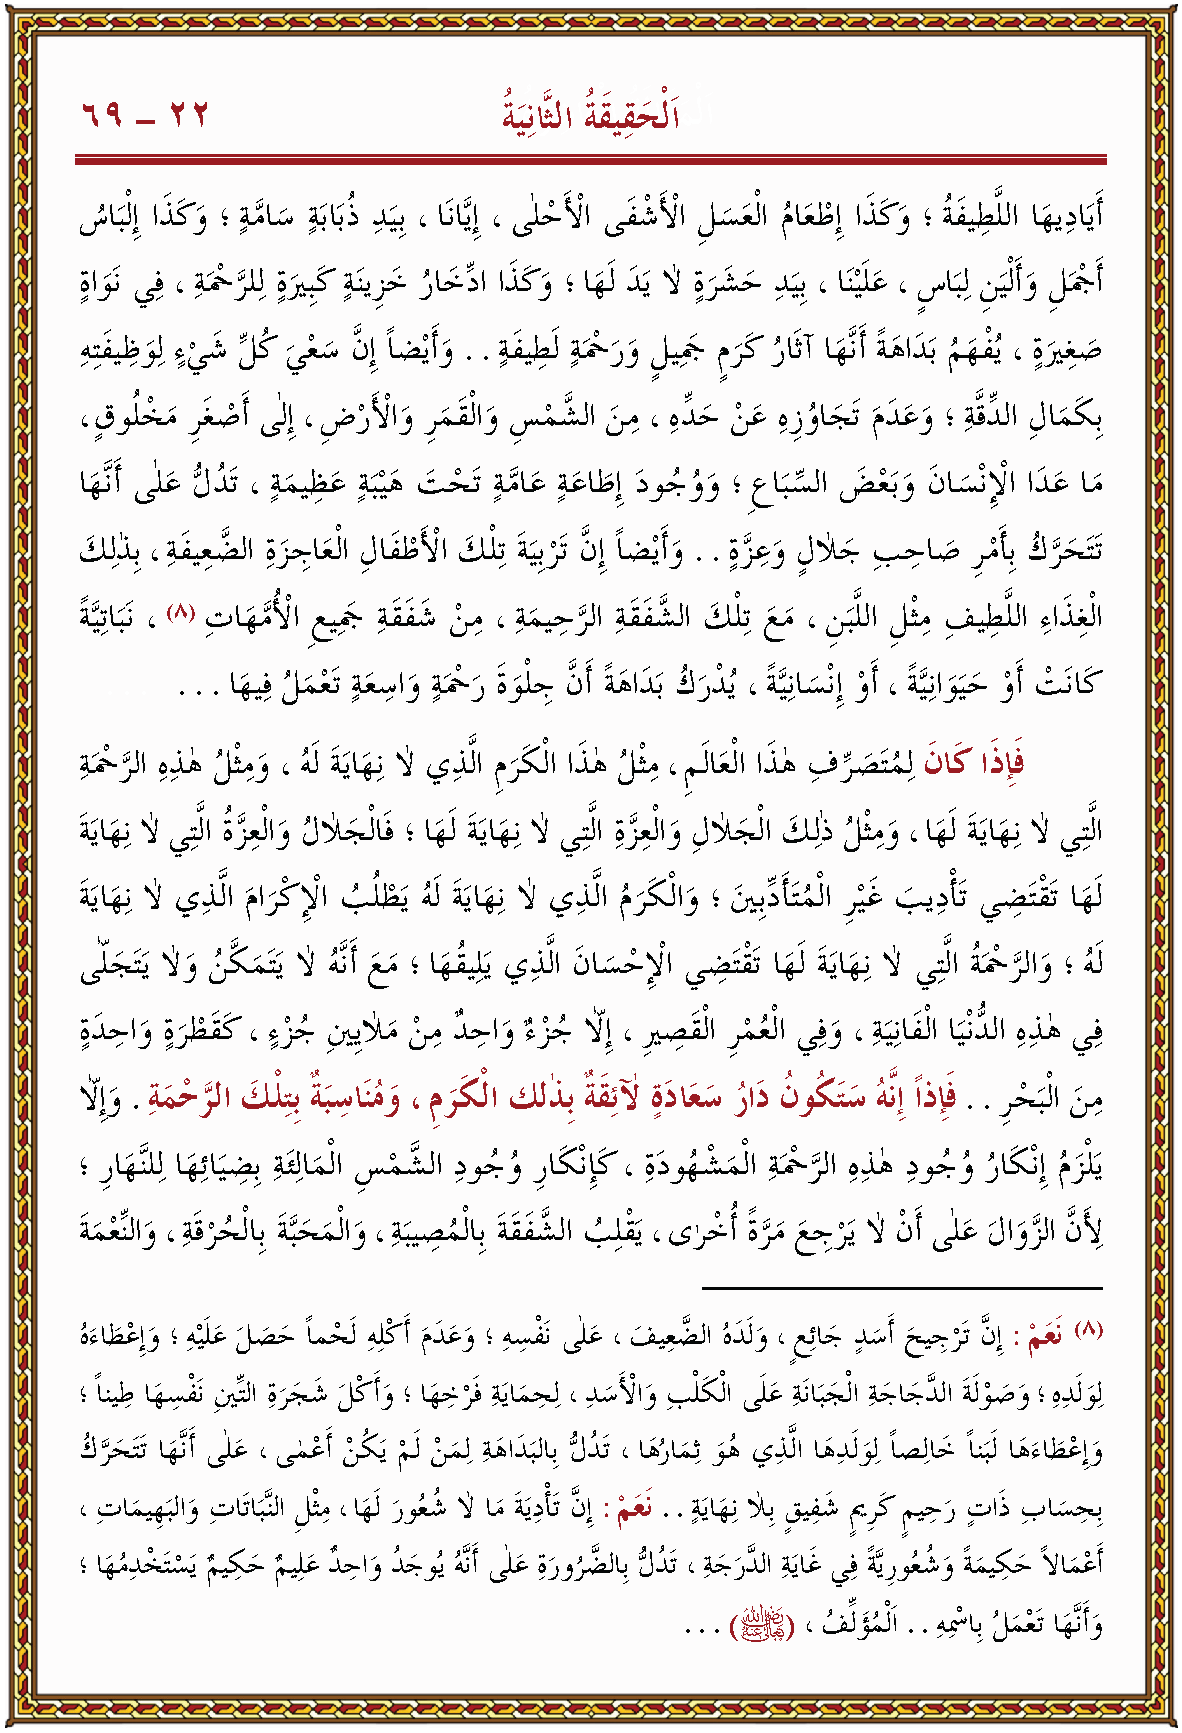 اَلْحَقِيقَةُ الثَّانِيَةُ ٢٢ – ٦٩
أَيَادِيهَا اللَّطِيفَةُ ؛ وَكَذَا إِطْعَامُ الْعَسَلِ الْأَشْفَى الْأَحْلٰى ، إِيَّانَا ، بِيَدِ ذُبَابَةٍ سَامَّةٍ ؛ وَكَذَا إِلْبَاسُ
أَجْمَلِ وَأَلْيَنِ لِبَاسٍ ، عَلَيْنَا ، بِيَدِ حَشَرَةٍ لَا يَدَ لَهَا ؛ وَكَذَا ادِّخَارُ خَزِينَةٍ كَبِيرَةٍ لِلرَّحْمَةِ ، فِي نَوَاةٍ
صَغِيرَةٍ ، يُفْهَمُ بَدَاهَةً أَنَّهَا آثَارُ كَرَمٍ جَمِيلٍ وَرَحْمَةٍ لَطِيفَةٍ . . وَأَيْضاً إِنَّ سَعْيَ كُلِّ شَيْءٍ لِوَظِيفَتِهِ
بِكَمَالِ الدِّقَّةِ ؛ وَعَدَمَ تَجَاوُزِهِ عَنْ حَدِّهِ ، مِنَ الشَّمْسِ وَالْقَمَرِ وَالْأَرْضِ ، إِلٰى أَصْغَرِ مَخْلُوقٍ ،
مَا عَدَا الْإِنْسَانَ وَبَعْضَ السِّبَاعِ ؛ وَوُجُودَ إِطَاعَةٍ عَامَّةٍ تَحْتَ هَيْبَةٍ عَظِيمَةٍ ، تَدُلُّ عَلٰى أَنَّهَا
تَتَحَرَّكُ بِأَمْرِ صَاحِبِ جَلَالٍ وَعِزَّةٍ . . وَأَيْضاً إِنَّ تَرْبِيَةَ تِلْكَ الْأَطْفَالِ الْعَاجِزَةِ الضَّعِيفَةِ ، بِذٰلِكَ
الْغِذَاءِ اللَّطِيفِ مِثْلِ اللَّبَنِ ، مَعَ تِلْكَ الشَّفَقَةِ الرَّحِيمَةِ ، مِنْ شَفَقَةِ جَمِيعِ الْأُمَّهَاتِ (٨) ، نَبَاتِيَّةً
كَانَتْ أَوْ حَيَوَانِيَّةً ، أَوْ إِنْسَانِيَّةً ، يُدْرَكُ بَدَاهَةً أَنَّ جِلْوَةَ رَحْمَةٍ وَاسِعَةٍ تَعْمَلُ فِيهَا . . .
فَإِذَا كَانَ لِمُتَصَرِّفِ هٰذَا الْعَالَمِ ، مِثْلُ هٰذَا الْكَرَمِ الَّذِي لَا نِهَايَةَ لَهُ ، وَمِثْلُ هٰذِهِ الرَّحْمَةِ
الَّتِي لَا نِهَايَةَ لَهَا ، وَمِثْلُ ذٰلِكَ الْجَلَالِ وَالْعِزَّةِ الَّتِي لَا نِهَايَةَ لَهَا ؛ فَالْجَلَالُ وَالْعِزَّةُ الَّتِي لَا نِهَايَةَ
لَهَا تَقْتَضِي تَأْدِيبَ غَيْرِ الْمُتَأَدِّبِينَ ؛ وَالْكَرَمُ الَّذِي لَا نِهَايَةَ لَهُ يَطْلُبُ الْإِكْرَامَ الَّذِي لَا نِهَايَةَ
لَهُ ؛ وَالرَّحْمَةُ الَّتِي لَا نِهَايَةَ لَهَا تَقْتَضِي الْإِحْسَانَ الَّذِي يَلِيقُهَا ؛ مَعَ أَنَّهُ لَا يَتَمَكَّنُ وَلَا يَتَجَلّٰى
فِي هٰذِهِ الدُّنْيَا الْفَانِيَةِ ، وَفِي الْعُمْرِ الْقَصِيرِ ، إِلَّا جُزْءٌ وَاحِدٌ مِنْ مَلَايِينِ جُزْءٍ ، كَقَطْرَةٍ وَاحِدَةٍ
مِنَ الْبَحْرِ . . فَإِذاً إِنَّهُ سَتَكُونُ دَارُ سَعَادَةٍ لَآئِقَةٌ بِذٰلك الْكَرَمِ ، وَمُنَاسِبَةٌ بِتِلْكَ الرَّحْمَةِ . وَإِلَّا
يَلْزَمُ إِنْكَارُ وُجُودِ هٰذِهِ الرَّحْمَةِ الْمَشْهُودَةِ ، كَإِنْكَارِ وُجُودِ الشَّمْسِ الْمَالِئَةِ بِضِيَائِهَا لِلنَّهَارِ ؛
لِأَنَّ الزَّوَالَ عَلٰى أَنْ لَا يَرْجِعَ مَرَّةً أُخْرٰى ، يَقْلِبُ الشَّفَقَةَ بِالْمُصِيبَةِ ، وَالْمَحَبَّةَ بِالْحُرْقَةِ ، وَالنِّعْمَةَ
(٨) نَعَمْ : إِنَّ تَرْجِيحَ أَسَدٍ جَائِعٍ ، وَلَدَهُ الضَّعِيفَ ، عَلٰى نَفْسِهِ ؛ وَعَدَمَ أَكْلِهِ لَحْماً حَصَلَ عَلَيْهِ ؛ وَإِعْطَاءَهُ
لِوَلَدِهِ ؛ وَصَوْلَةَ الدَّجَاجَةِ الْجَبَانَةِ عَلَى الْكَلْبِ وَالْأَسَدِ ، لِحِمَايَةِ فَرْخِهَا ؛ وَأَكْلَ شَجَرَةِ التِّينِ نَفْسِهَا طِيناً ؛
وَإِعْطَاءَهَا لَبَناً خَالِصاً لِوَلَدِهَا الَّذِي هُوَ ثِمَارُهَا ، تَدُلُّ بِالْبَدَاهَةِ لِمَنْ لَمْ يَكُنْ أَعْمٰى ، عَلٰى أَنَّهَا تَتَحَرَّكُ
بِحِسَابِ ذَاتٍ رَحِيمٍ كَرِيمٍ شَفِيقٍ بِلَا نِهَايَةٍ . . نَعَمْ : إِنَّ تَأْدِيَةَ مَا لَا شُعُورَ لَهَا ، مِثْلِ النَّبَاتَاتِ وَالْبَهِيمَاتِ ،
أَعْمَالاً حَكِيمَةً وَشُعُورِيَّةً فِي غَايَةِ الدَّرَجَةِ ، تَدُلُّ بِالضَّرُورَةِ عَلٰى أَنَّهُ يُوجَدُ وَاحِدٌ عَلِيمٌ حَكِيمٌ يَسْتَخْدِمُهَا ؛
وَأَنَّهَا تَعْمَلُ بِاسْمِهِ . . اَلْمُؤَلِّفُ ، (رَضِيَ اللهُ تَعَالَى عَنْهُ) . . .